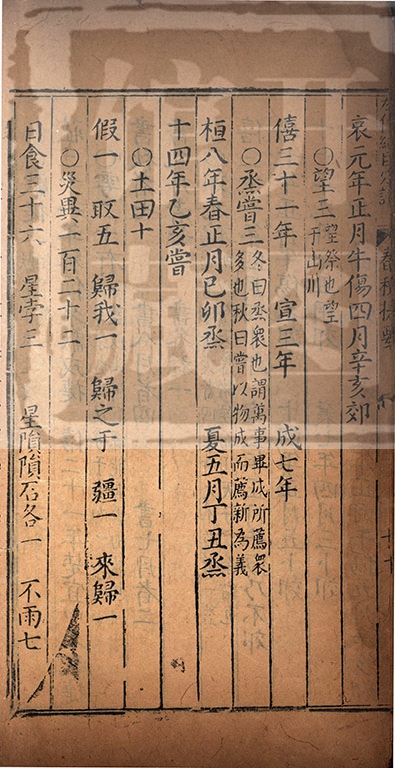 哀元年正月牛傷四月辛亥郊
○望三望祭也望于山川
僖三十一年 宣三年 成七年
○烝嘗三冬曰烝衆也謂萬事畢成所薦衆多也秋曰嘗以物成而薦新為義
桓八年春正月己卯烝 夏五月丁丑烝
十四年乙亥嘗
○土田十
假一 取五 歸我一 歸之于一 疆一 來歸一
○災異一百二十二
日食三十六 星孛三 星隕隕石各一 不雨七